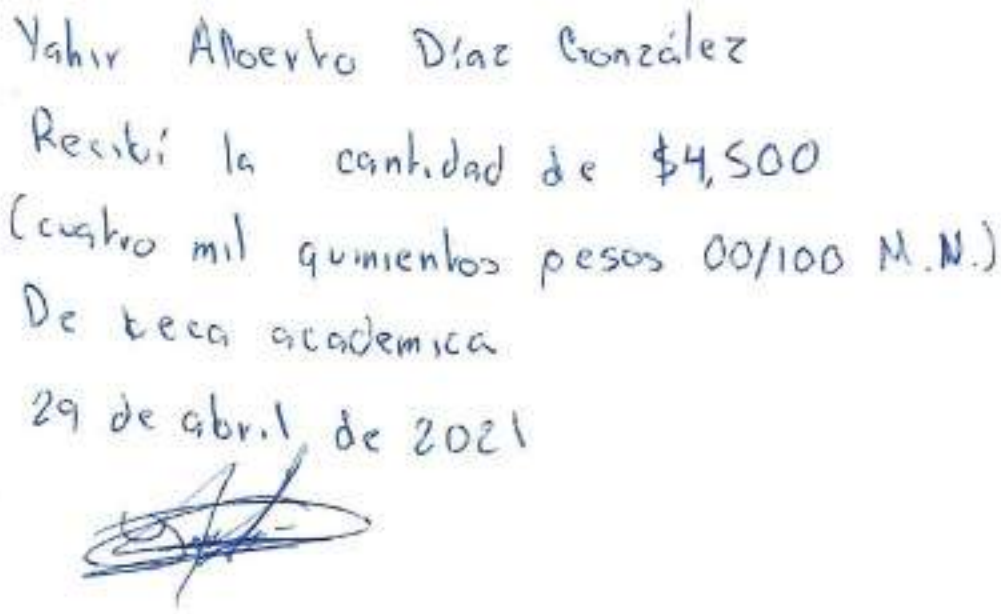 Yahir Alberto Díaz González
Recibí la cantidad de $4,500
(cuatro mil quinientos pesos 00/100 M.N.)
De beca academica
29 de abril de 2021